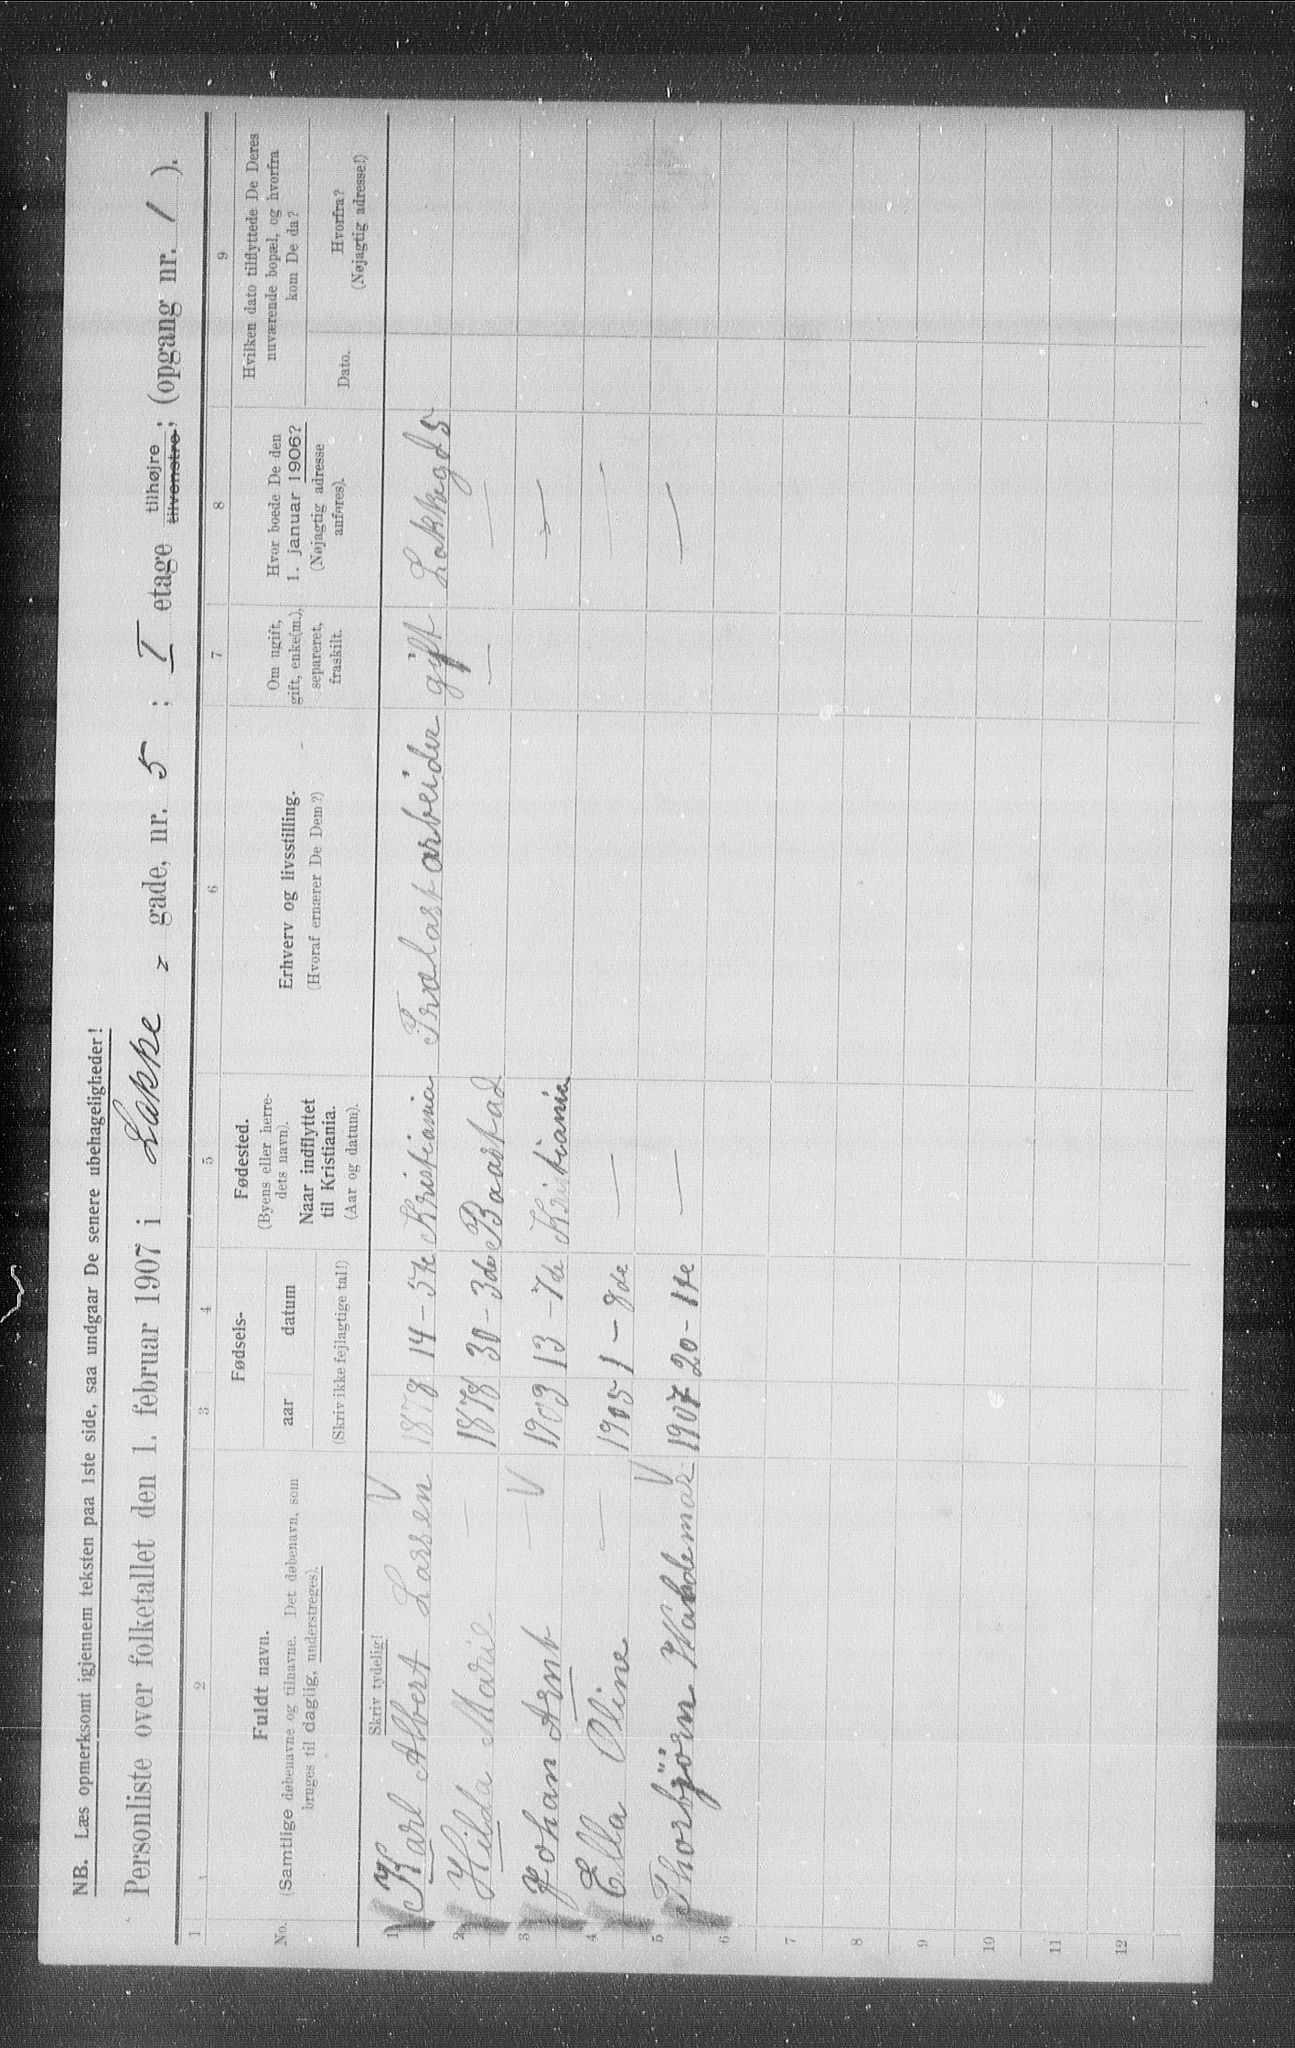 NB. Læs opmerksomt igjennem teksten paa 1ste side, saa undgaar De senere ubehageligheder!
Personliste over folketallet den 1. februar 1907 i Lakke - gade, nr. 5 ; I etage tilhøjre tilvenstre; (opgang nr. 1 ).
1 2 3 4 5 6 7 8 9
No.
Fuldt navn.
(Samtlige døbenavne og tilnavne. Det døbenavn, som
bruges til daglig, understreges).
Skriv tydelig!
Fødsels-
aar datum
(Skriv ikke fejlagtige tal!)
Fødested.
(Byens eller herre-
dets navn).
Naar indflyttet
til Kristiania.
(Aar og datum).
Erhverv og livsstilling.
(Hvoraf ernærer De Dem?)
Om ugift,
gift, enke(m.),
separeret,
fraskilt.
Hvor boede De den
1. januar 1906?
(Nøjagtig adresse
anføres).
Hvilken dato tilflyttede De Deres
nuværende bopæl, og hvorfra
kom De da?
Dato.
Hvorfra?
(Nøjagtig adresse!)
1 Karl Albert Larsen V 1878 14-5te Kristiania Trælastarbeider gift Lakkegd 5
2 Hilda Marie — 1878 30-3de Baastad — —
3 Johan Arnt — V 1903 13-7de Kristiania —
4 Ella Oline — 1905 1-8de — —
5 Thorbjörn Valdemar V 1907 20-1te — —
6
7
8
9
10
11
12